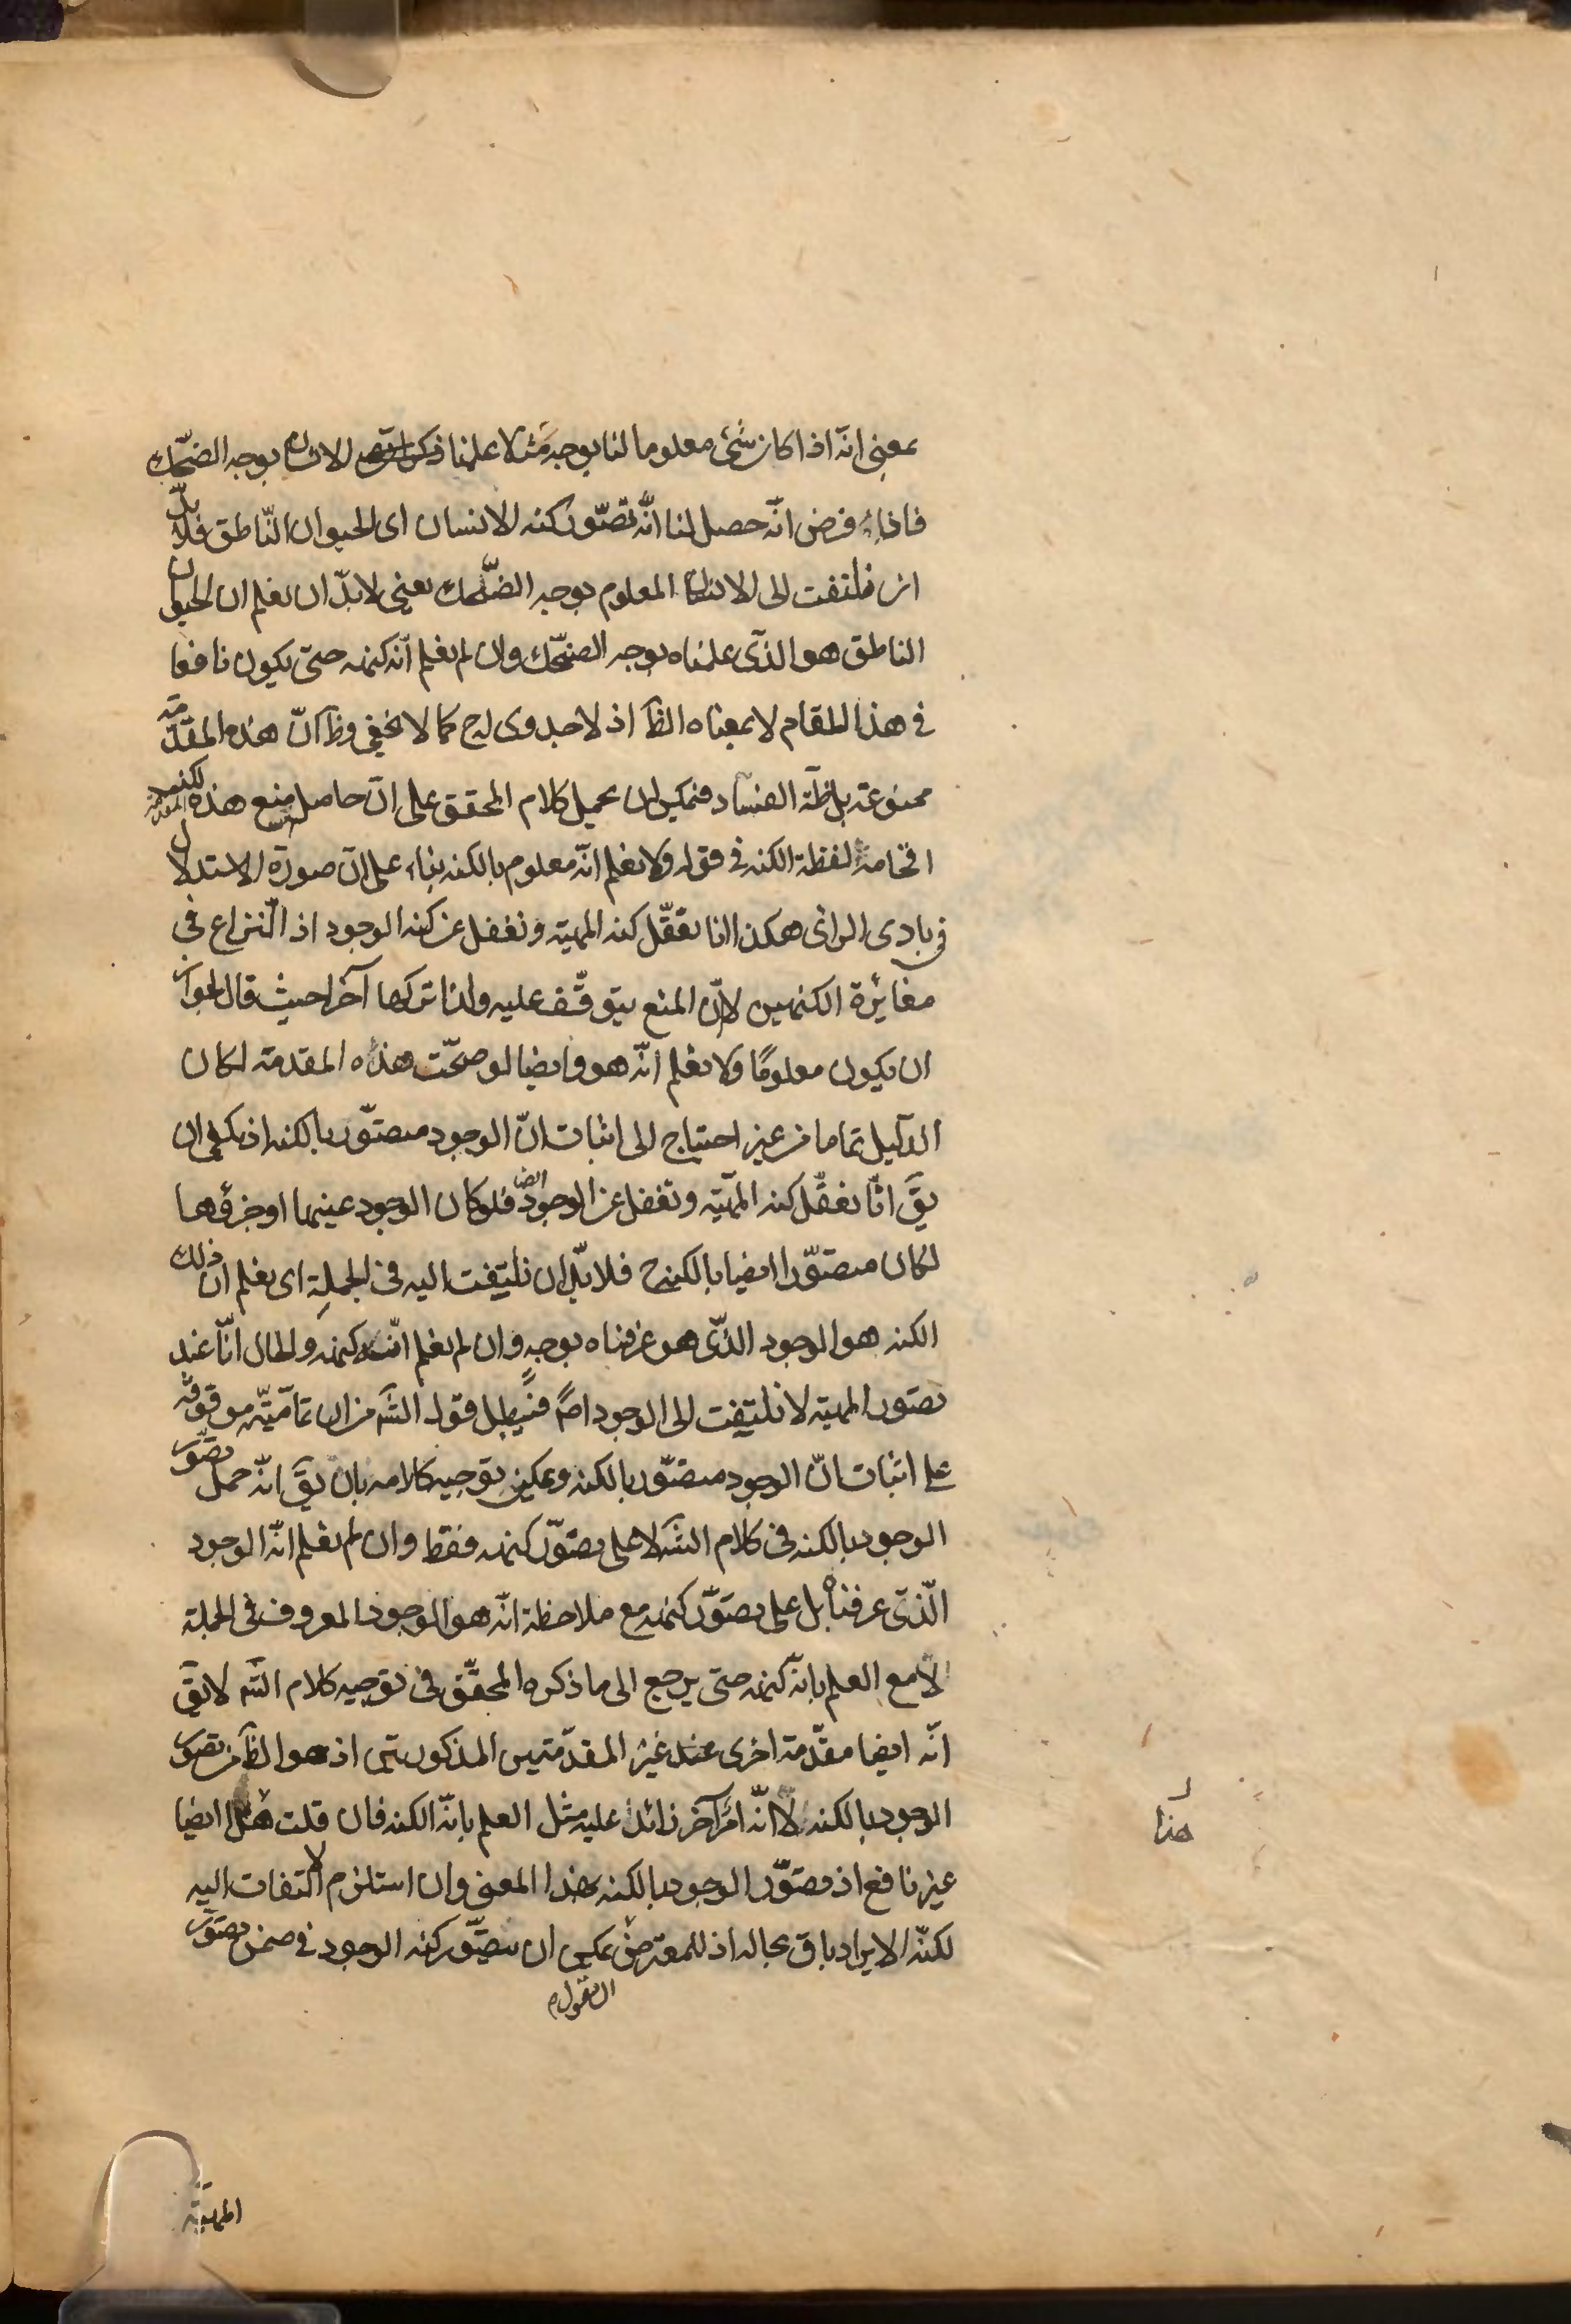 بمعنى انّه اذا كان شئ معلوما لنا بوجه مثلا علمنا الانسان بوجه الضحّك
فاذا فرض انّه حصل لنا انّه تصوّر كنه الانسان اى الحيوان النّاطق فلا بدّ
ان نلتفت الى الانسان المعلوم بوجه الضّحك يعنى لا بدّ ان نعلم ان الحيوان
الناطق هو الذى علمناه بوجه الضحّك وان لم نعلم انّه كنهه حتى يكون نافعا
فى هذا المقام لا بمعناه الظَ اذ لا جدوى له ح كما لا يخفى وظَ انّ هذه المقدّمة
ممنوعة بل ظَة الفساد فيمكن ان يحمل كلام المحقق على انّ حاصل منع هذه المقدمة لكنه
اقحامه لفظة الكنه فى قوله ولا نعلم انّه معلوم بالكنه بناء على انّ صورة الاستدلال
فى بادى الرائ هكذا انا نتعقّل كنه المهية ونغفل عن كنه الوجود اذ النزاع فى
مغائرة الكنهين لانّ المنع يتوقّف عليه ولذا تركها آخرا حيث قال لجواز
ان يكون معلومًا ولا نعلم انّه هو وايضا لو صحّت هذه المقدمة لكان
الدليل تماما من غير احتياج الى اثبات انّ الوجود متصوّر بالكنه اذ يكفى ان
يقَ انّا نعقل كنه المهيّة ونغفل عن الوجود فلو كان الوجود عينها او جزؤها
لكان متصوّرا ايضا بالكنه ح فلا بدّ ان نلتفت اليه فى الجملة اى نعلم ان ذلك
الكنه هو الوجود الذّى هو عرفناه بوجه وان لم نعلم انّه كنهه والحال انّا عند
تصور المهية لا نلتفت الى الوجود اصً فيبطل قول الشَ من ان تماميّته موقوفة
على اثبات انّ الوجود متصوّر بالكنه ويمكن توجيه كلامه بان يقَ انّه حمل تصوّر
الوجود بالكنه فى كلام الشَ لا على تصوّر كنهه فقط وان لم نعلم انّه الوجود
الّذى عرفناه بل على تصوّر كنهه مع ملاحظة انّه هو الوجود المعروف فى الجملة
لا مع العلم بانّه كنهه حتى يرجع الى ما ذكره المحقّق فى توجيه كلام الشَ لا يقَ
انّه ايضا مقدّمة اخرى عنده غير المقدّمتين المذكورتين اذ هو الظَ من تصور
الوجود بالكنه لا انّه امر آخر زائد عليه مثل العلم بانّه الكنه فان قلت هذا ايضا
غير نافع اذ تصوّر الوجود بالكنه بهذا المعنى وان استلزم الالتفات اليه
لكنّ الايراد باق بحاله اذ للمعترض ان يقول يمكن ان يتصوّر كنه الوجود فى ضمن تصوّر
هذا
المهية